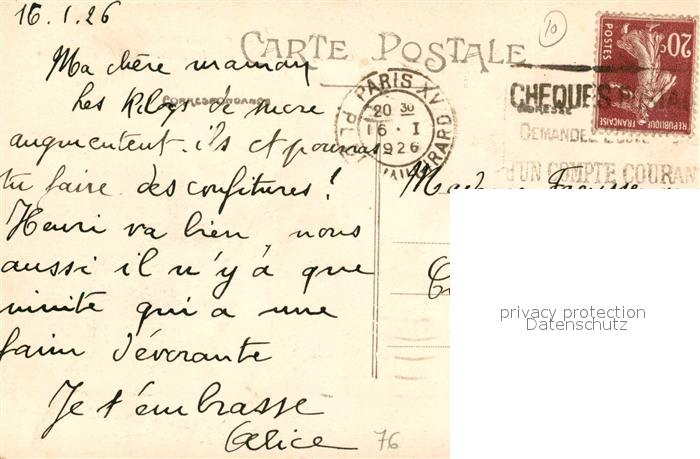 16.1.26
10
CARTE POSTALE
CORRESPONDANCE
Ma chère maman
Les kilogs de sucre
augmentent-ils et pourras
tu faire des confitures !
Henri va bien, nous
aussi il n'y a que
minite qui a une
faim dévorante
Je t'embrasse
Alice
76
PARIS XV
20 30
16 - I
1926
CHEQUES
ADRESSE
DEMANDEZ
D'UN COMPTE COURAN
20c
POSTES
REPUBLIQUE FRANÇAISE
privacy protection
Datenschutz